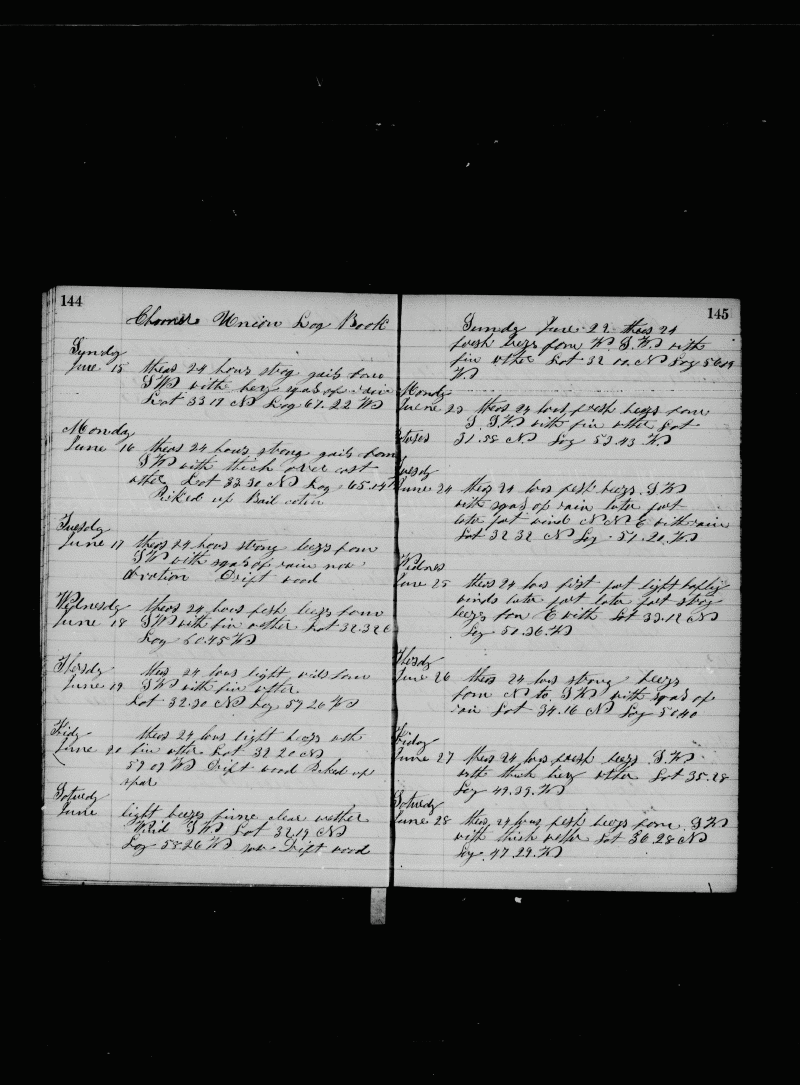 144
Chooner Union Log Book
Sunday
June 15 theas 24 hours strog gails from
S W with hevy sqals of rain
Lat 33 19 N Log 67. 22 W
Monday
June 16 theas 24 hours strong gails from
S W with thick over cast
wther Lat 33. 30 N Log 65.14
Picked up Bail coten
Tuesday
June 17 theas 24 hours strong beezs from
S W with sqals of rain now
obvation Drift wood
Wednesday theas 24 hours fresh beezs from
June 18 S W with fin wether Lat 32.32 6
Log 60.45 W
Thersdy theas 24 hours light wids from
June 19 S W with fin wther
Lat 32.30 N Log 59.26 W
Fridy theas 24 hours light beezs with
June 20 fin wther Lat 32 20 N
59.09 W Drift wood Picked up
spar
Saturdy
June light beezs finne clear wether
Wid S W Lat 32 19 N
Log 58 26 W saw Drift wood
145
Sunday June 22 theas 24
fresh beezs from W. S. W. with
fin wther Lat 32 N Log 56
W
Mondy
June 23 theas 24 hours fresh beezs from
S. S W with fin wther Lat
31.58 N Log 53.43 W.
Tuesdy
June 24 theas 24 hours fresh beezs. S W
with sqals of rain later part
later part wind N N E with rain
Lat 32 32 N Log. 51. 21. W
Wednes
June 25 theas 24 hours first part light bafling
winds later part later part strog
beezs from E with Lat 33.12 N
Log 50.36 W
Thersdy
June 26 theas 24 hours strong beezs
from N to S W with sqals of
rain Lat 34.16 N Log 50 40
Friday
June 27 theas 24 hours fresh beezs S. W
with thick hevy wther Lat 35. 28
Log 49. 39. W
Saturdy
June 28 theas 24 hours fresh beezs from S W
with thick wether Lat 36.28 N
Log. 47. 29. W